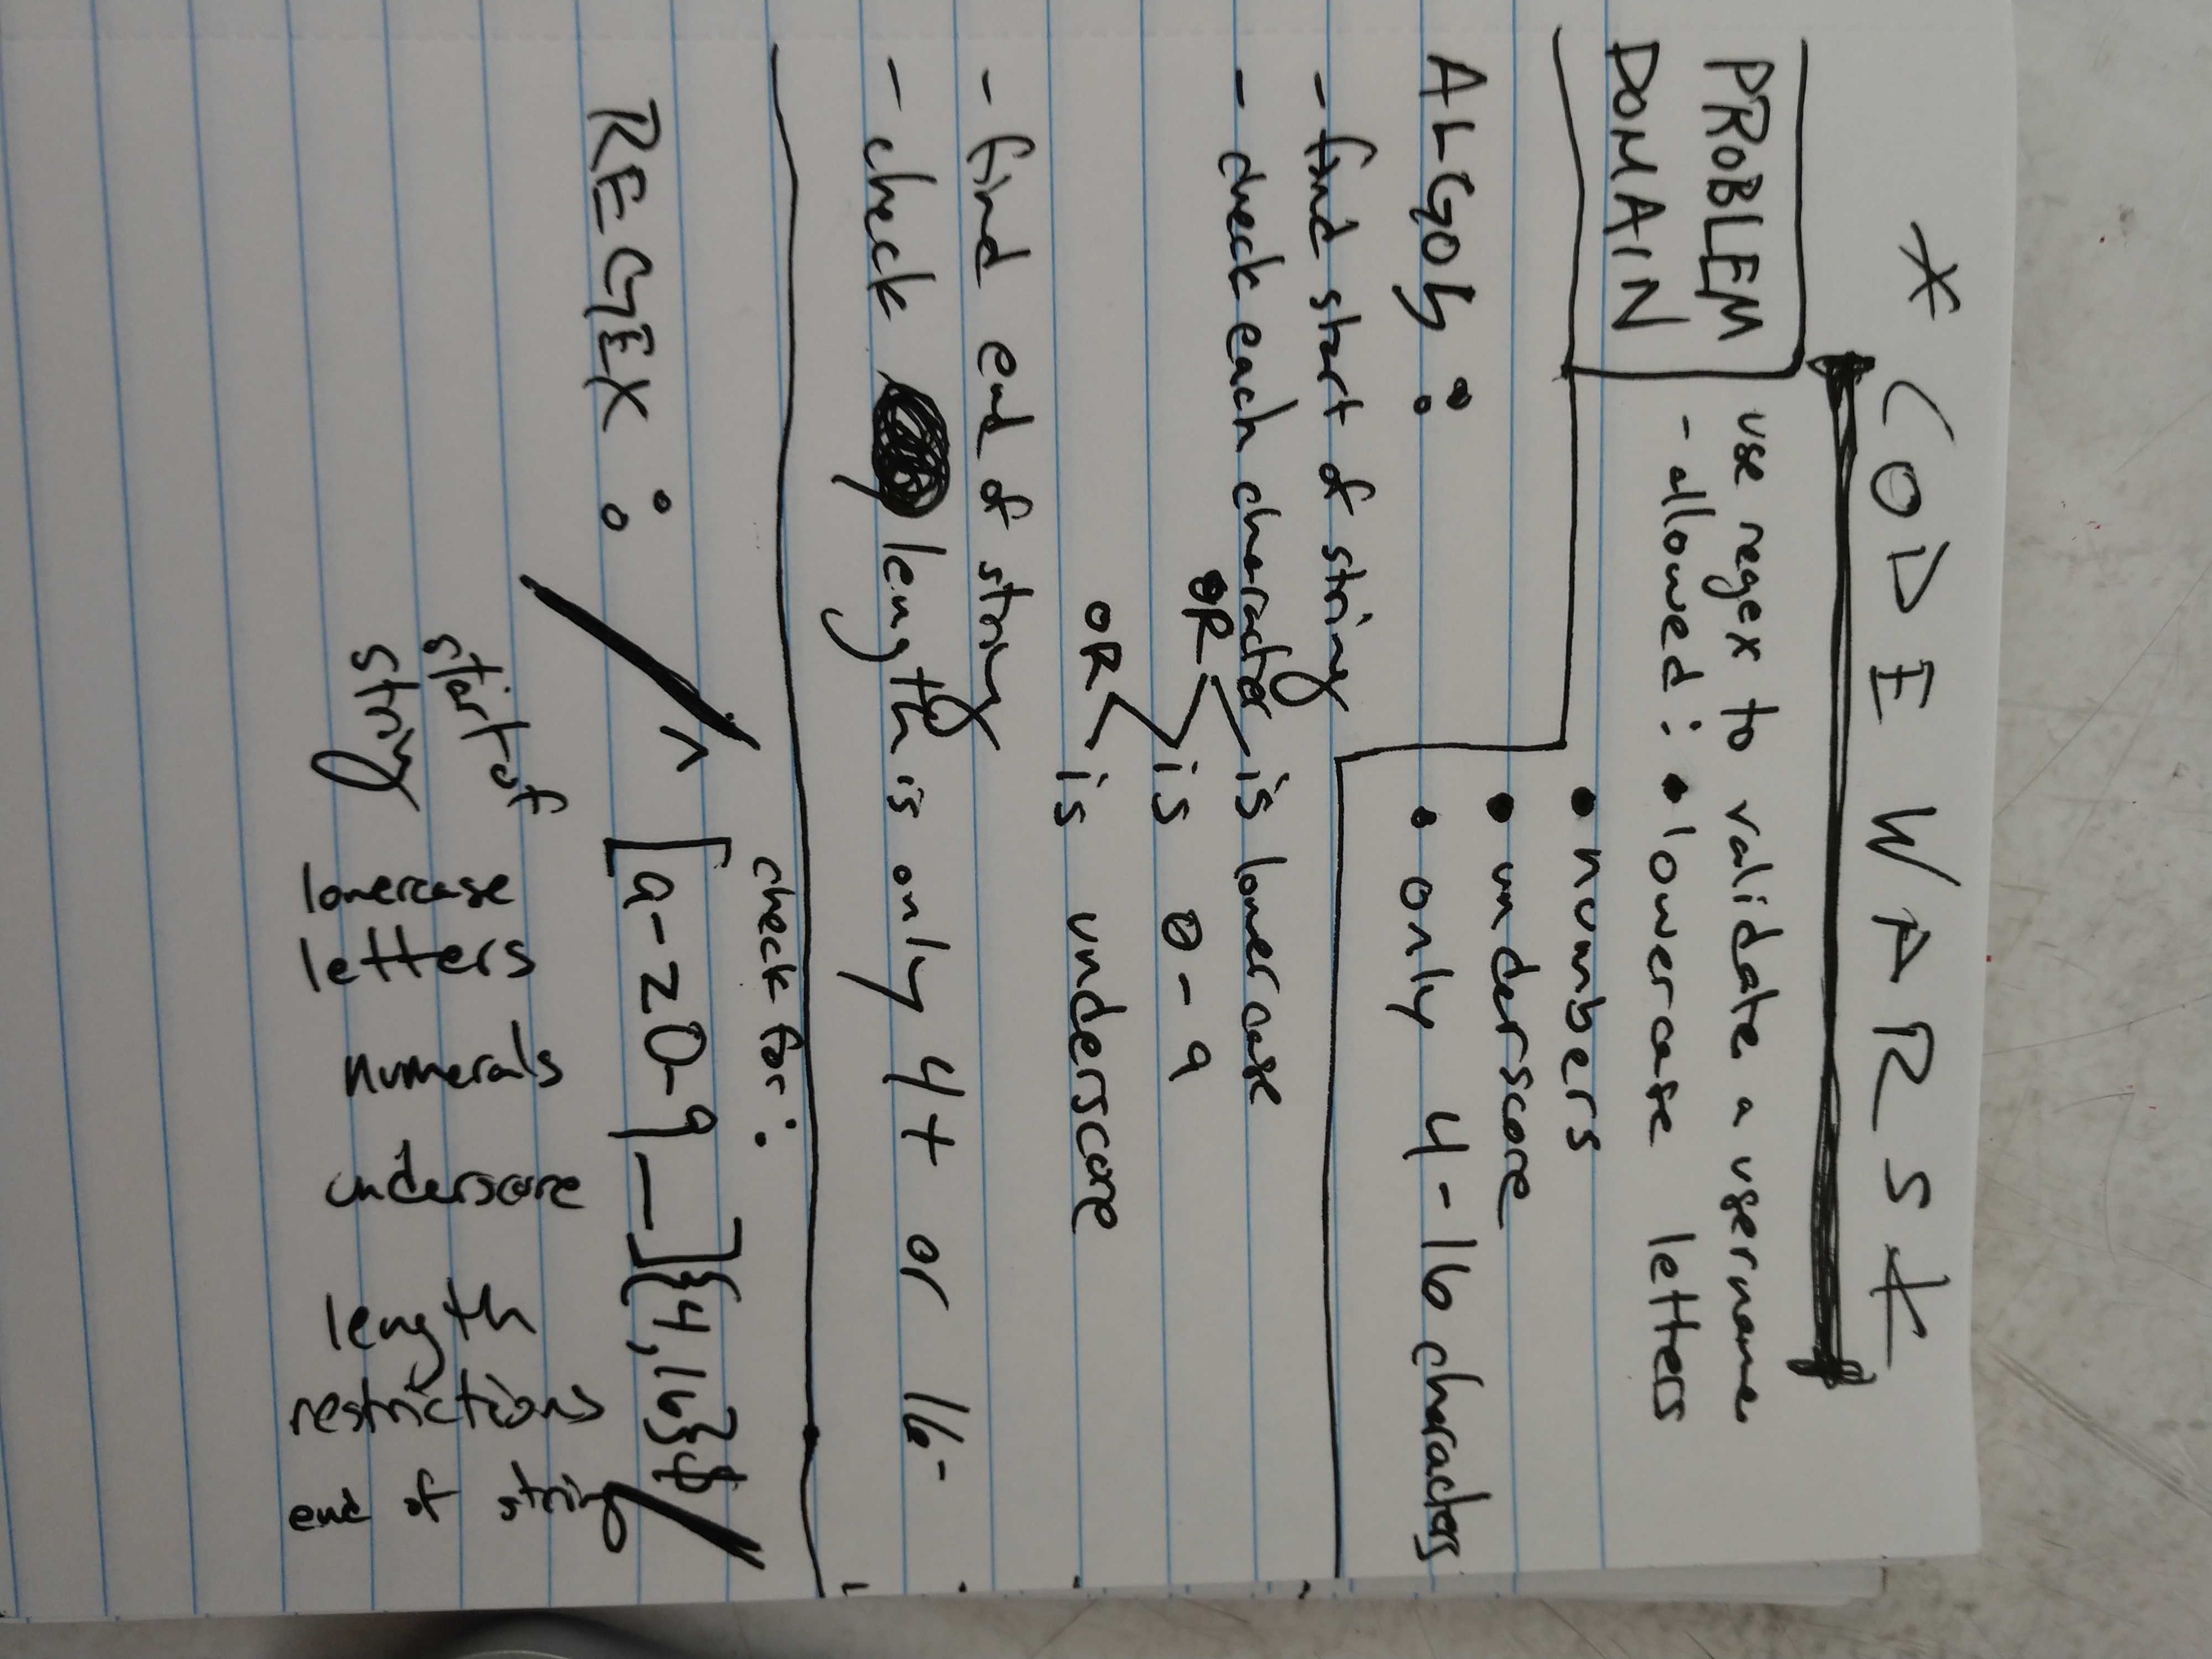 * CODE WARS *
PROBLEM
DOMAIN
use regex to validate a username
- allowed: • lowercase letters
• numbers
• underscore
• only 4-16 characters
ALGOh:
- find start of string
- check each character is lowercase
OR
is 0-9
OR
is underscore
- find end of string
- check length is only 4+ or 16-
check for:
REGEX: /^[a-z0-9_]{4,16}$/
start of
string
lowercase
letters
numerals
underscore
length
restrictions
end of string